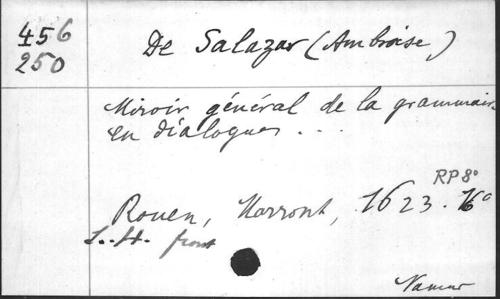 456
250
De Salazar (Ambroise)
Miroir général de la grammaire
en dialogues ...
RP 8°
Rouen, 1623. 16°
L.-H. front
Namur